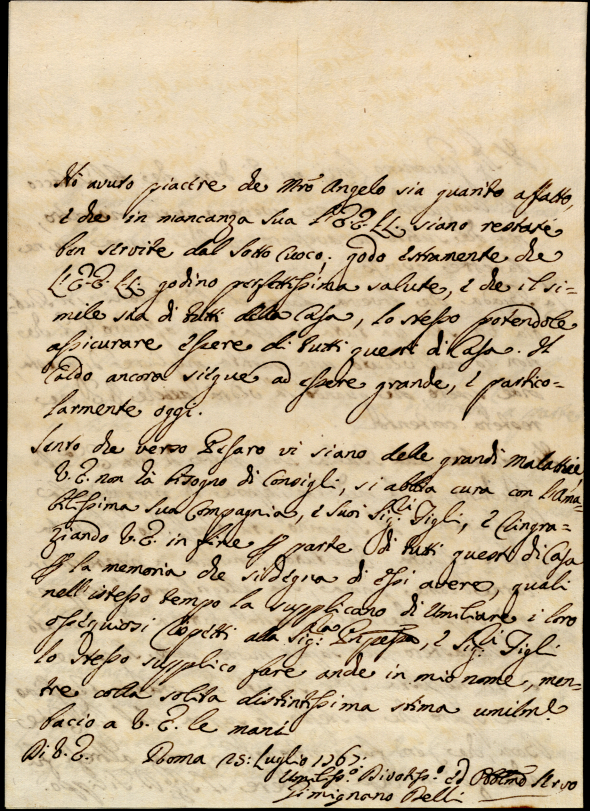 Ho avuto piacere che Mro Angelo sia guarito affatto,
e che in mancanza sua L'E.E. LL. siano restate
ben servite dal sotto Cuoco; godo estramente che
L'E.E. LL. godino perfettissima salute, e che il si=
mile sia di tutti della Casa, lo stesso potendole
assicurare essere di tutti questi di Casa. Il
Caldo ancora siegue ad essere grande, e partico=
larmente oggi.
Sento che verso Pesaro vi siano delle grandi malattie,
V.E. non hà bisogno di Consigli, si abbia cura con l'Ama=
bilissima sua Compagnia, e suoi Sig.li Figli, e Ringra=
ziando V.E. in fine p parte di tutti questi di Casa
p la memoria che si degna di essi avere, quali
nell'istesso tempo la supplicano di umiliare i loro
ossequiosi Rispetti alla Sig.ra Contessa, e Sig.li Figli
lo stesso supplico fare anche in mio nome, men=
tre colla solita distintissima stima umilme
bacio a V.E. le mani
Di V.E. Roma 25: Luglio 1767:
Umiliss.o Divotiss.o ed Obblmo Servo
Gimignano Belli